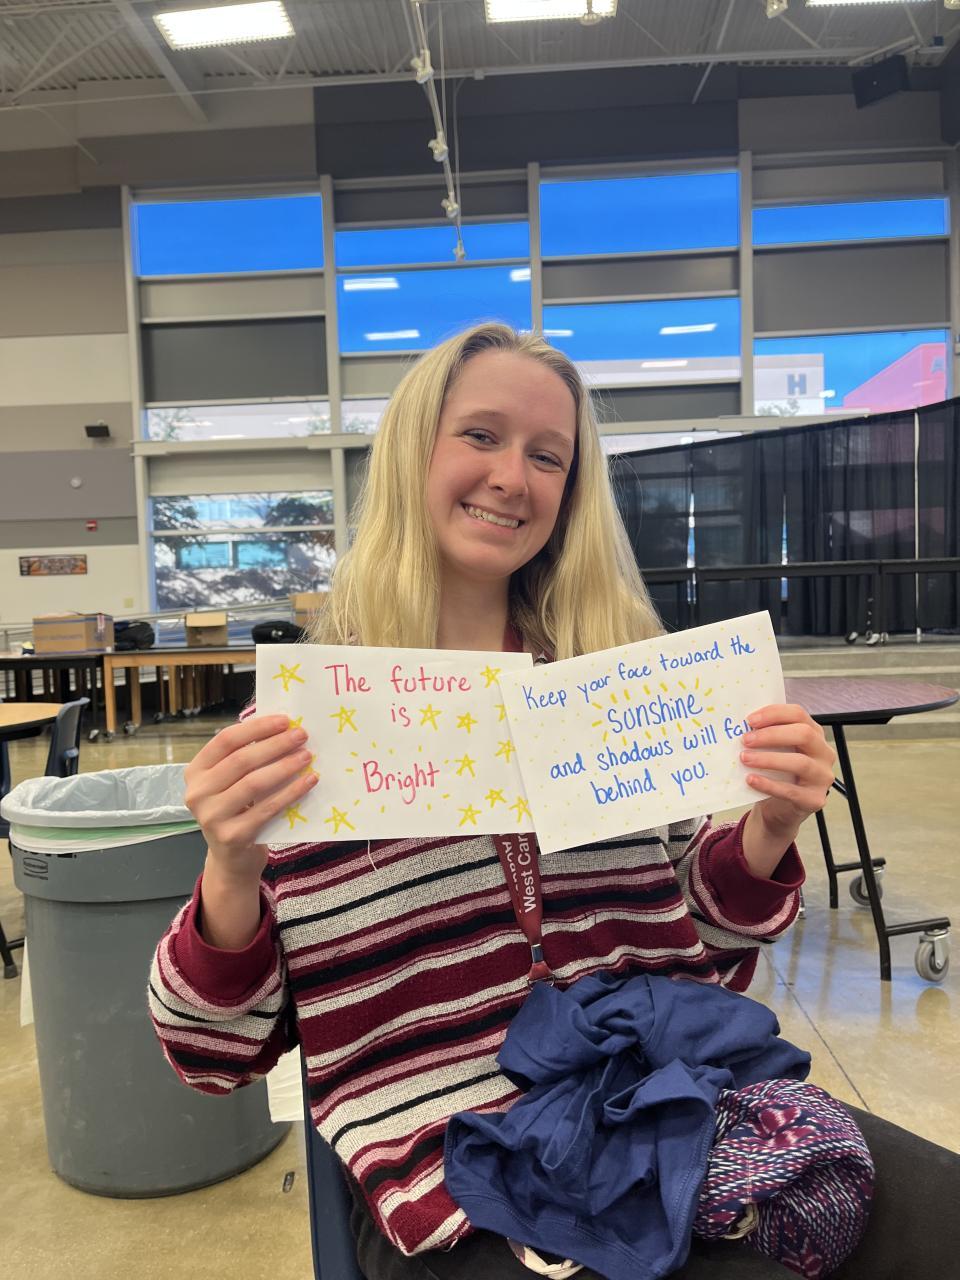 H
The future
is
Bright
Keep your face toward the
sunshine
and shadows will fall
behind you.
West Cam